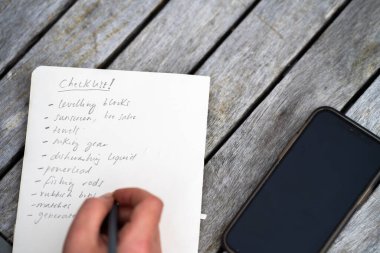 Checklist!
- levelling blocks
- sunscreen,
- towels
- hiking gear
- dishwashing liquid
- powerlead
- fishing rods
- rubbish
- matches